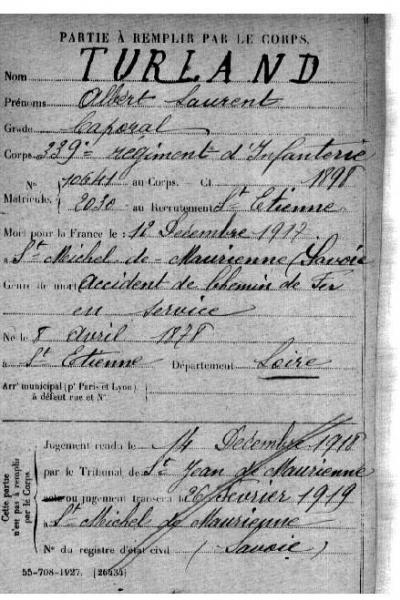 PARTIE À REMPLIR PAR LE CORPS.
Nom TURLAND
Prénoms Albert Laurent
Grade Caporal
Corps 339e régiment d'Infanterie
N° 10641 au Corps. Cl. 1898
Matricule. 2030 au Recrutement St Etienne
Mort pour la France le 12 Décembre 1917
à St Michel de Maurienne (Savoie
Genre de mort Accident de Chemin de Fer
en service
Né le 8 Avril 1878
à St Etienne Département Loire
Arrt municipal (pr Paris et Lyon),
à défaut rue et N°.
Cette partie n'est pas à remplir par le Corps.
Jugement rendu le 14 Décembre 1918
par le Tribunal de St Jean de Maurienne
acte ou jugement transcrit le 26 Février 1919
à St Michel de Maurienne
N° du registre d'état civil (Savoie)
55-708-1927. [26434]